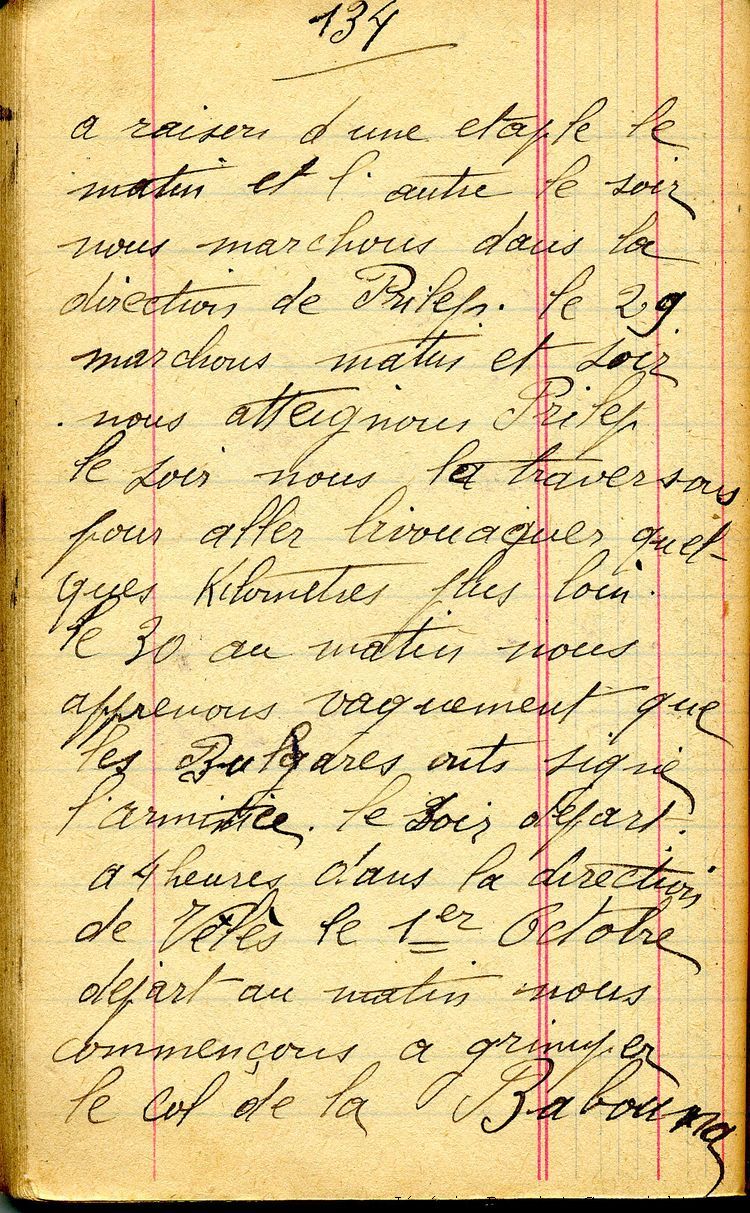 134
a raison d'une etaple le
matin et l'autre le soir
nous marchons dans la
direction de Prilep. le 29
marchons matin et soir
. nous atteignons Prilep
le soir nous la traversons
pour aller bivouaquer quel-
ques Kilometres plus loin.
le 30 au matin nous
apprenons vaguement que
les Bulgares onts signé
l'armitice. le Soir départ.
a 4 heures dans la direction
de Vélès le 1er Octobre
départ au matin nous
commençons a grimper
le col de la Babouna